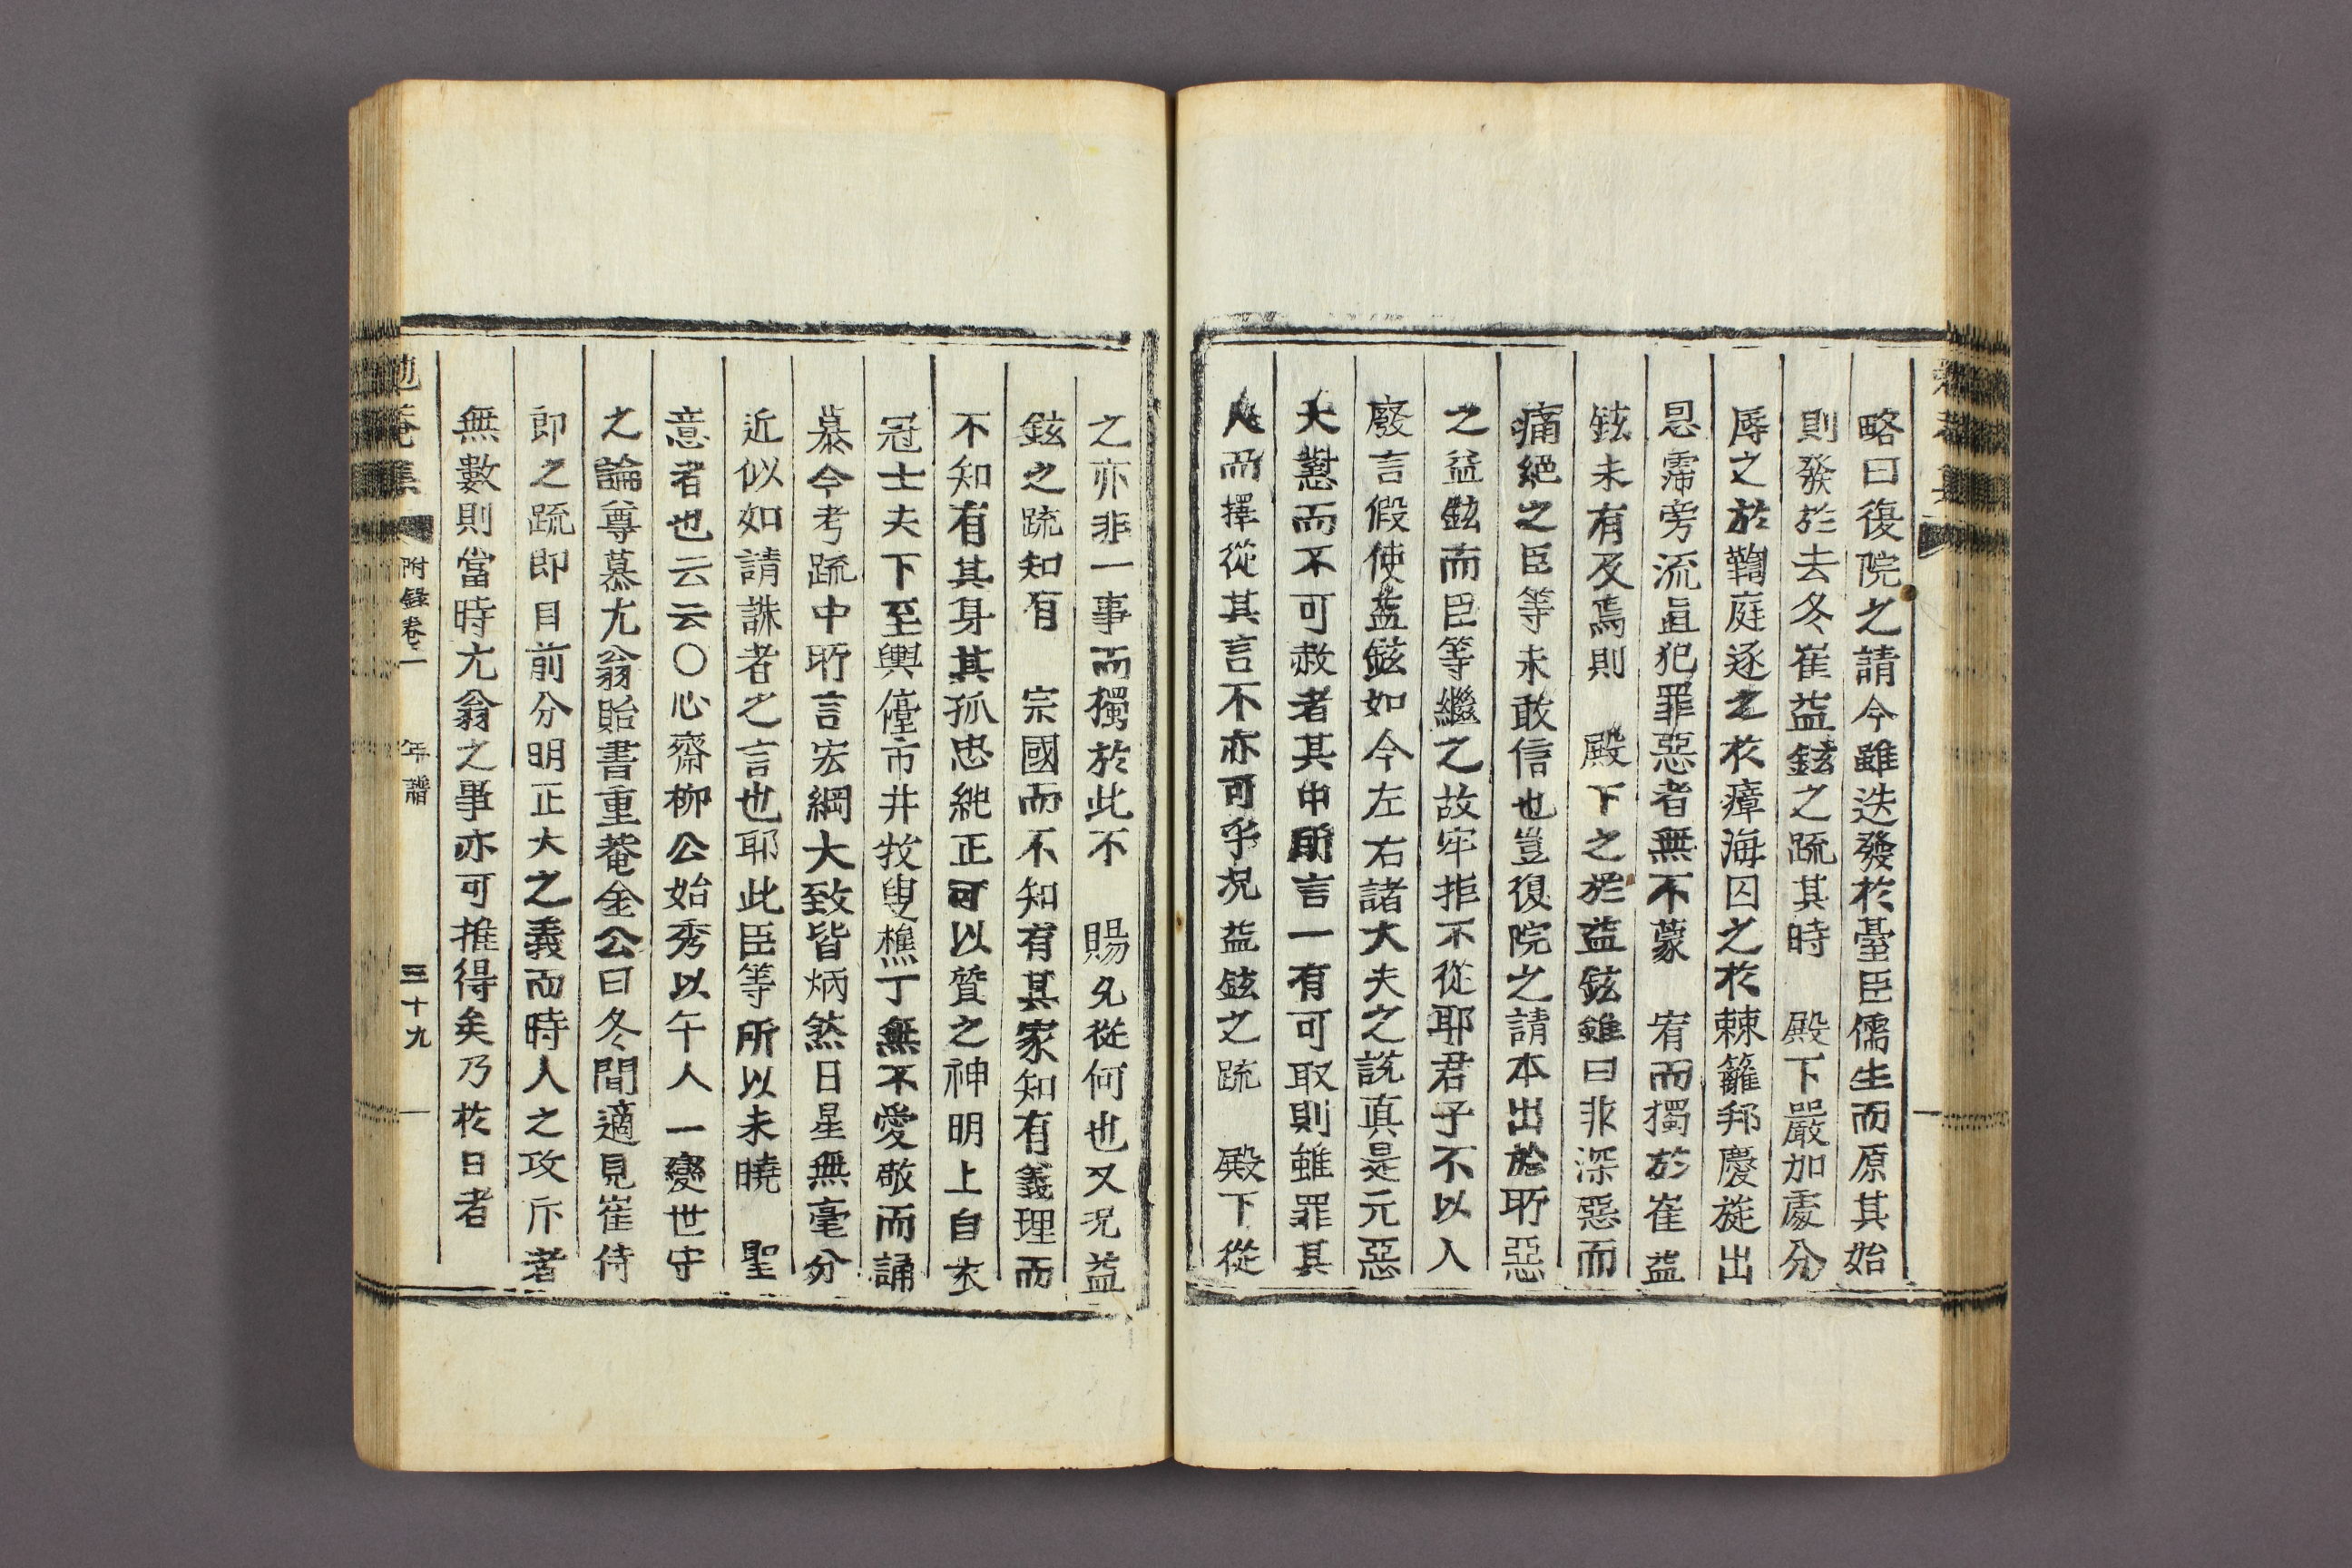 略曰復院之請今雖迭發於臺臣儒生而原其始
則發於去冬崔益鉉之疏其時　殿下嚴加處分
辱之於鞫庭逐之於瘴海囚之於棘籬邦慶旋出
恩霈旁流眞犯罪惡者無不蒙　宥而獨於崔益
鉉未有及焉則　殿下之於益鉉雖曰非深惡而
痛絕之臣等未敢信也豈復院之請本出於所惡
之益鉉而臣等繼之故牢拒不從耶君子不以人
廢言假使益鉉如今左右諸大夫之說真是元惡
大憝而不可赦者其中所言一有可取則雖罪其
人而擇從其言不亦可乎况益鉉之疏　殿下從
之亦非一事而獨於此不　賜允從何也又况益
鉉之疏知有　宗國而不知有其家知有義理而
不知有其身其孤忠純正可以質之神明上自衣
冠士夫下至輿儓市井牧叟樵丁無不愛敬而誦
慕今考疏中所言宏綱大致皆炳然日星無毫分
近似如請誅者之言也耶此臣等所以未曉　聖
意者也云云○心齋柳公始秀以午人一變世守
之論尊慕尤翁貽書重菴金公曰冬間適見崔侍
郎之疏即目前分明正大之義而時人之攻斥者
無數則當時尤翁之事亦可推得矣乃於日者
勉菴集　附錄卷一　年譜　三十九